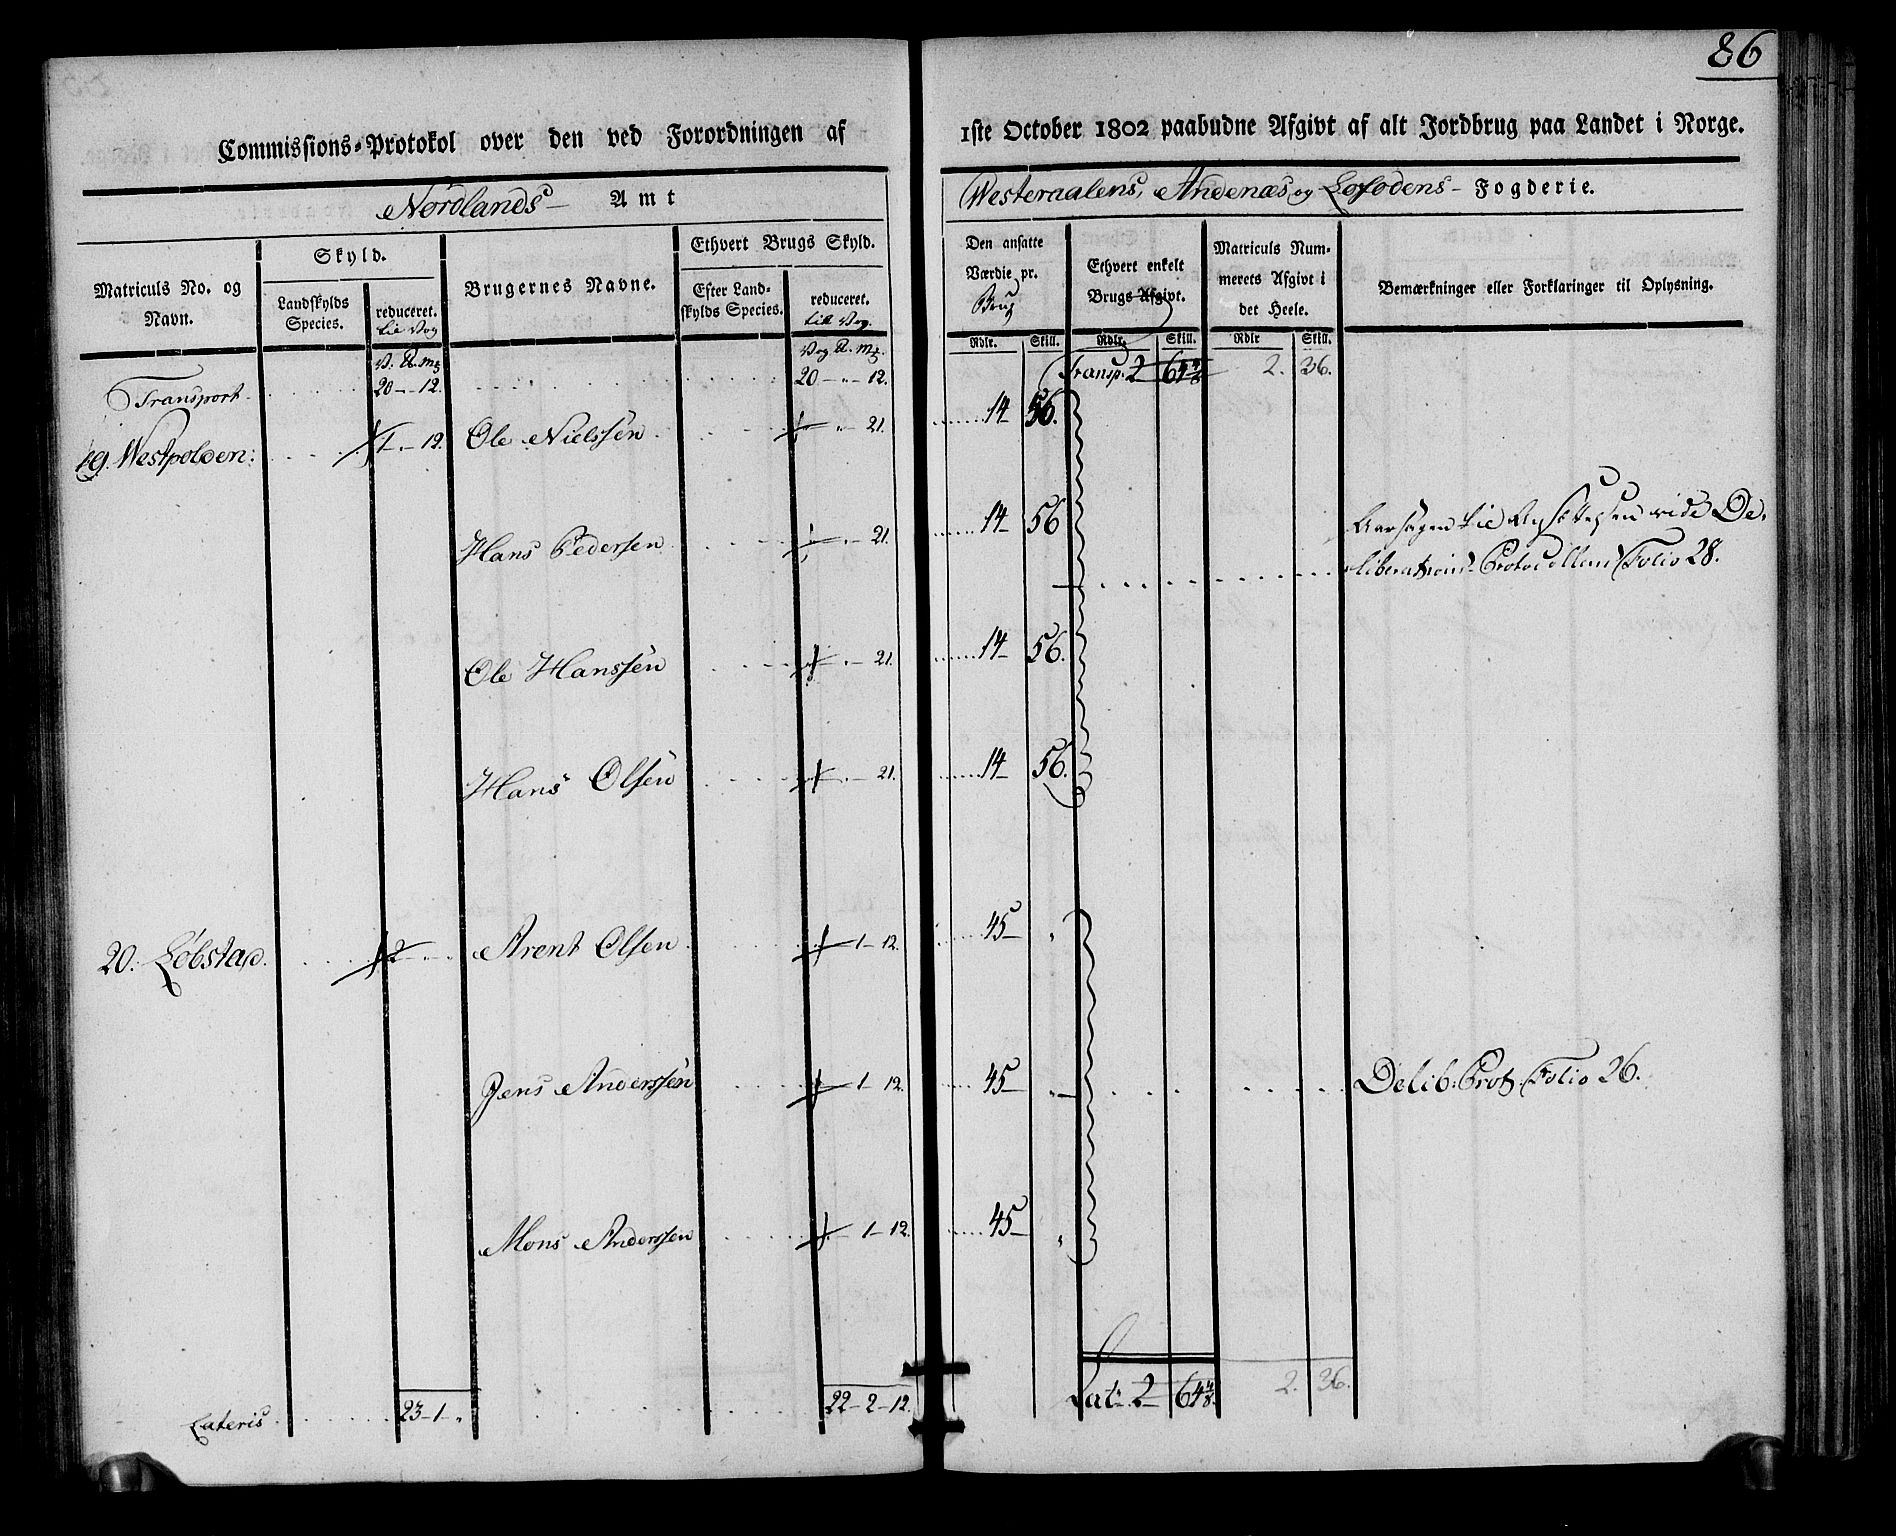 86
Commissions-Protokol over den ved Forordningen af
1ste October 1802 paabudne Afgivt af alt Jordbrug paa Landet i Norge.
Nordlands Amt
Westeraalens, Andenæs og Lofodens Fogderie.
Matriculs No. og Navn.
Skyld.
Landskylds Species.
reduceret. til Vog
Brugernes Navne.
Ethvert Brugs Skyld.
Efter Landskylds Species.
reduceret. till Vog.
Den ansatte Værdie pr. Brug
Ethvert enkelt Brugs Afgivt.
Matriculs Nummerets Afgivt i det Heele.
Bemærkninger eller Forklaringer til Oplysning.
Rdlr. Skill. Rdlr. Skill. Rdlr Skill.
V. P. Mk Vog P. Mk.
Transport 20 - " - 12. 20 - " - 12. Transp. 2 64 4/8 2. 36.
19. Westpolden: 1 - " - 12. Ole Nielssen " - 21. 14 56.
Hans Pedersen " - 21. 14 56
Aarsagen til Ansættelsen vide De-
liberations Protocollens Folio 28.
Ole Hanssen " - 21. 14 56.
Hans Olsen " - 21. 14 56.
20. Løbstad. 2 - " - " Arent Olsen 1 - 12. 45 "
Jens Anderssen 1 - 12. 45 " Delib. Prot. Folio 26.
Mons Anderssen 1 - 12. 45 "
Lateris 23 - 1 - " 22 - 2 - 12. Lat. 2 64 4/8. 2. 36.